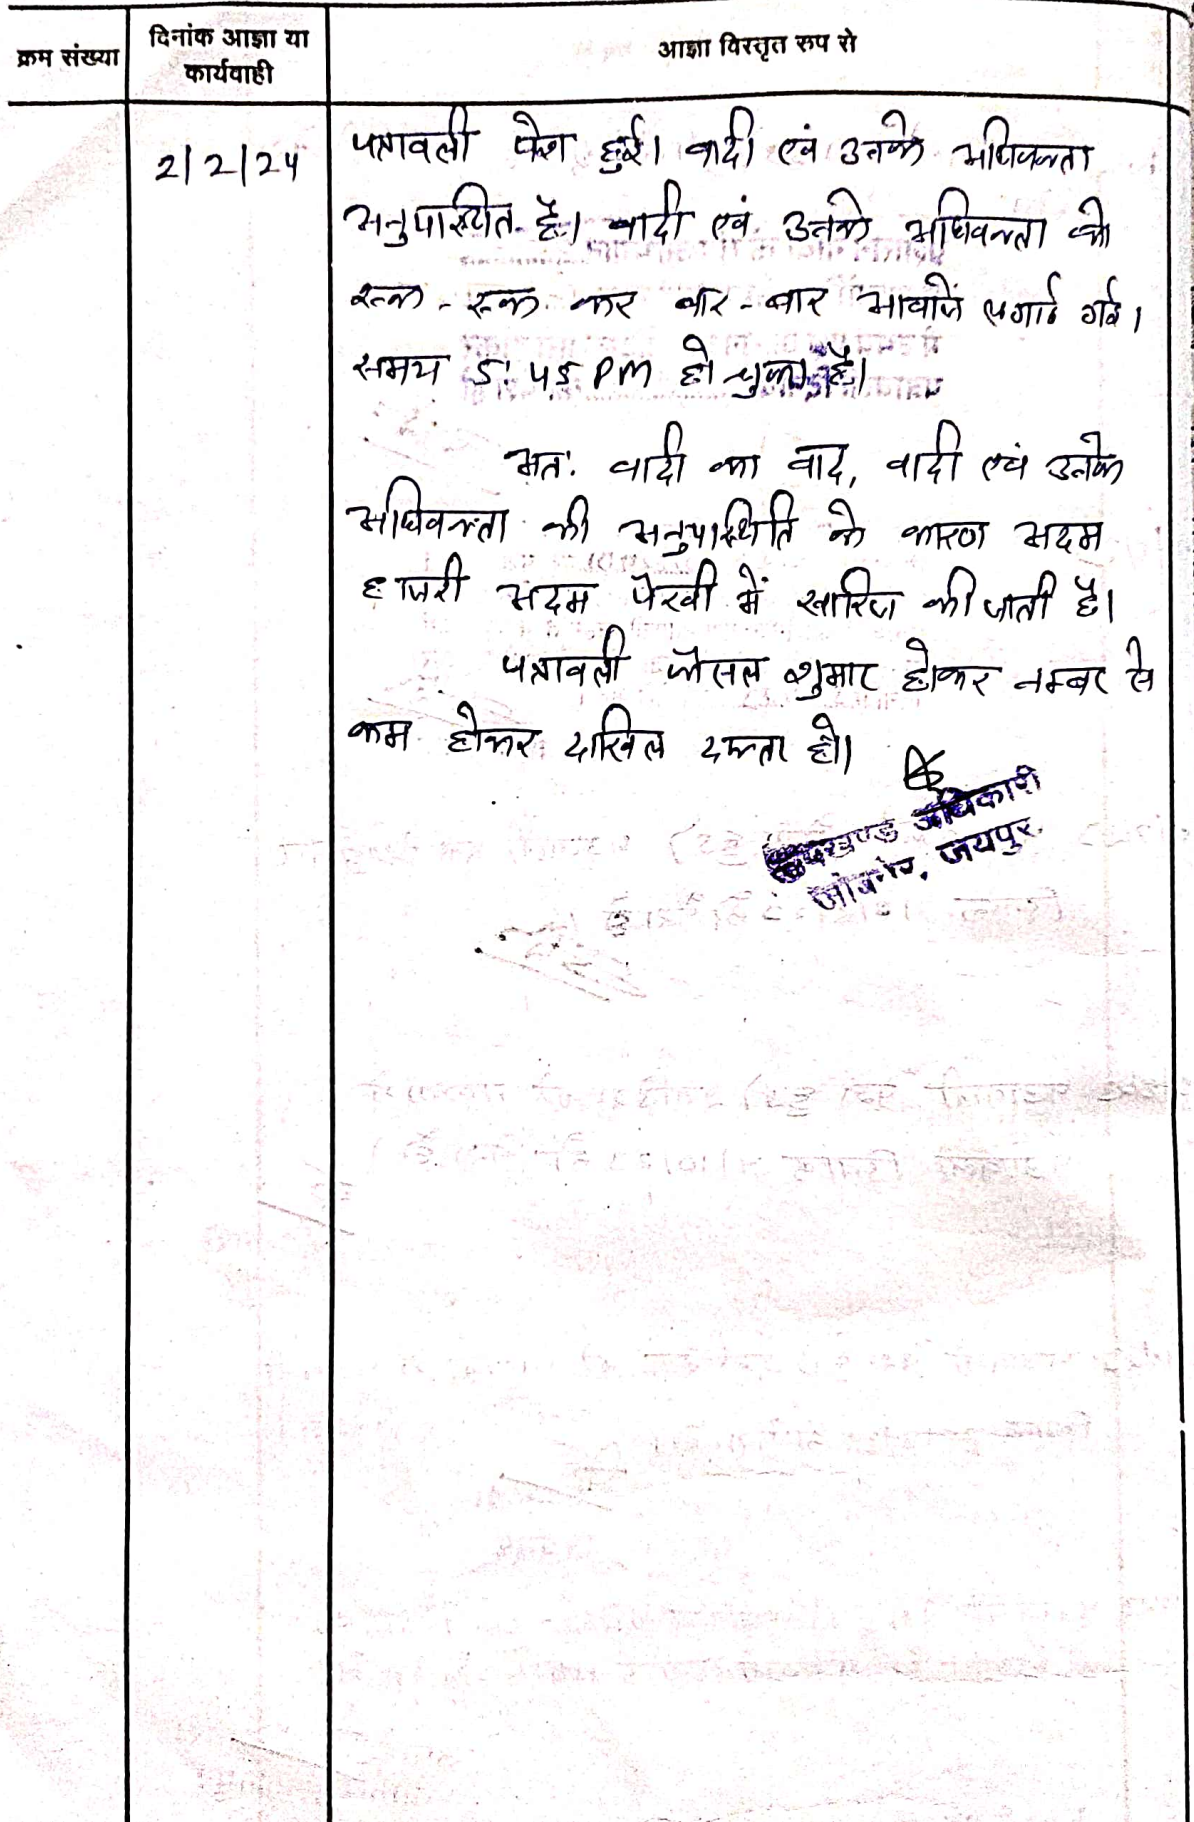 क्रम संख्या
दिनांक आज्ञा या
कार्यवाही
आज्ञा विस्तृत रूप से
2/2/24
पत्रावली पेश हुई। वादी एवं उनके अधिवक्ता
अनुपस्थित है। वादी एवं उनके अधिवक्ता को
रूक - रूक कर बार - बार आवाजें लगाई गई।
समय 5:45 PM हो चुका है।
अतः वादी का वाद, वादी एवं उनके
अधिवक्ता की अनुपस्थिति के कारण अदम
हाजरी अदम पैरवी में खारिज की जाती है।
पत्रावली फैसल शुमार होकर नम्बर से
कम होकर दाखिल दफ्तर हो।
उपखण्ड अधिकारी
जोबनेर, जयपुर